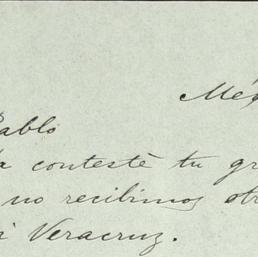 Méx
Pablo
a contesté tu gr
no recibimos otr
Veracruz.